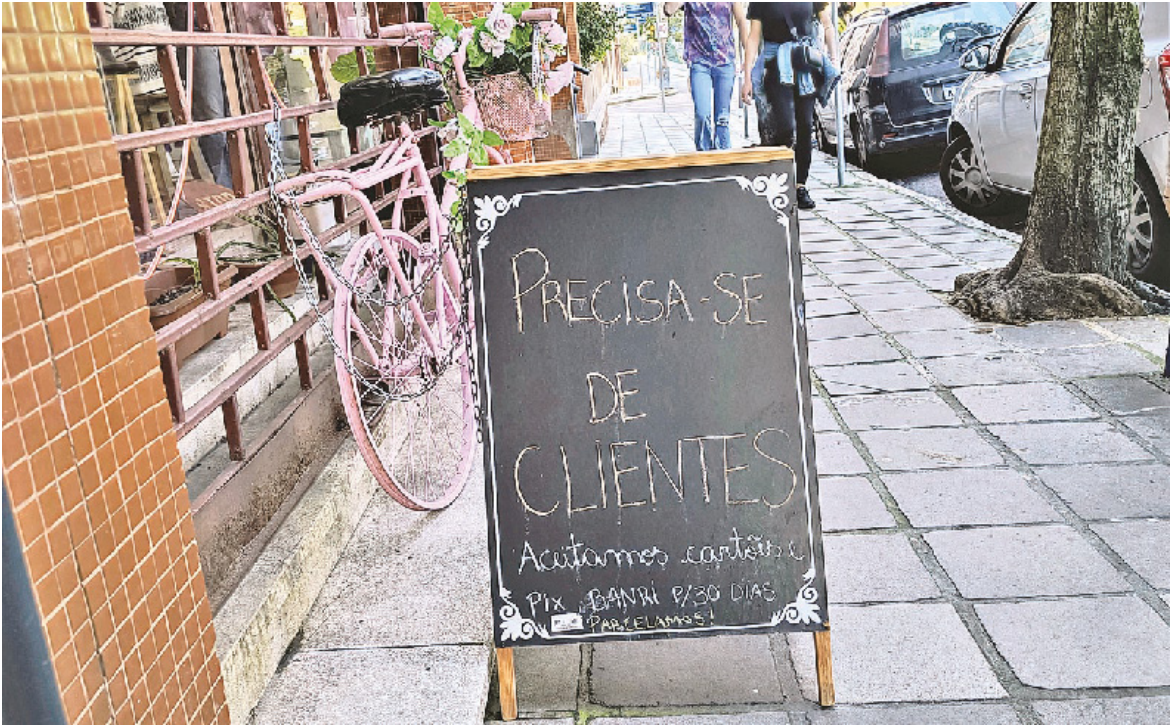 PRECISA-SE
DE
CLIENTES
Aceitamos cartões e
PIX BANRI P/30 DIAS
PARCELAMOS!